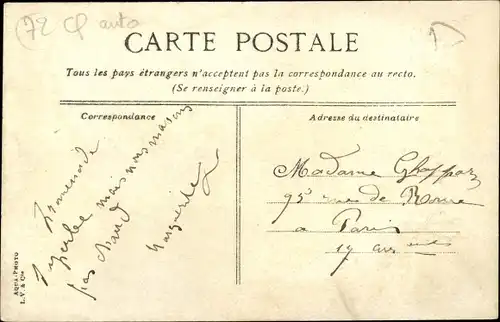 72 cp auto
CARTE POSTALE
Tous les pays étrangers n'acceptent pas la correspondance au recto.
(Se renseigner à la poste.)
Correspondance
Promenade
superbe mais nous n'avons
pas chaud
Marguerite
Adresse du destinataire
Madame
95 rue de Rome
a Paris
17 arr
AQUA-PHOTO
L. V. & Cie